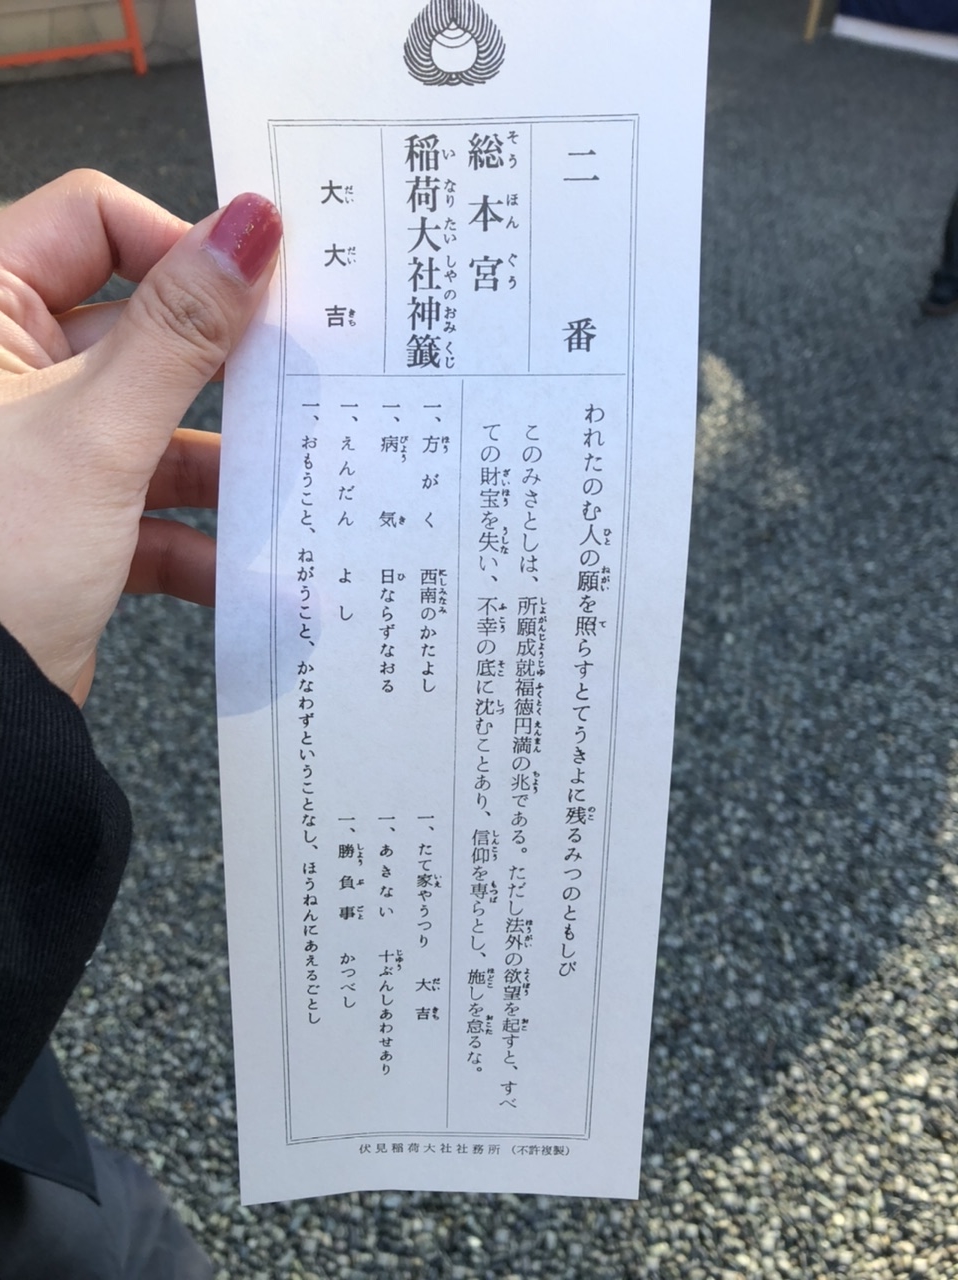 二番
総本宮
稲荷大社神籤
大大吉
われたのむ人の願を照らすとてうきよに残るみつのともしび
このみさとしは、所願成就福徳円満の兆である。ただし法外の欲望を起すと、すべ
ての財宝を失い、不幸の底に沈むことあり、信仰を専らとし、施しを怠るな。
一、方がく 西南のかたよし
一、病気 日ならずなおる
一、えんだん よし
一、たて家やうつり 大吉
一、あきない 十ぶんしあわせあり
一、勝負事 かつべし
一、おもうこと、ねがうこと、かなわずということなし、ほうねんにあえるごとし
伏見稲荷大社社務所(不許複製)